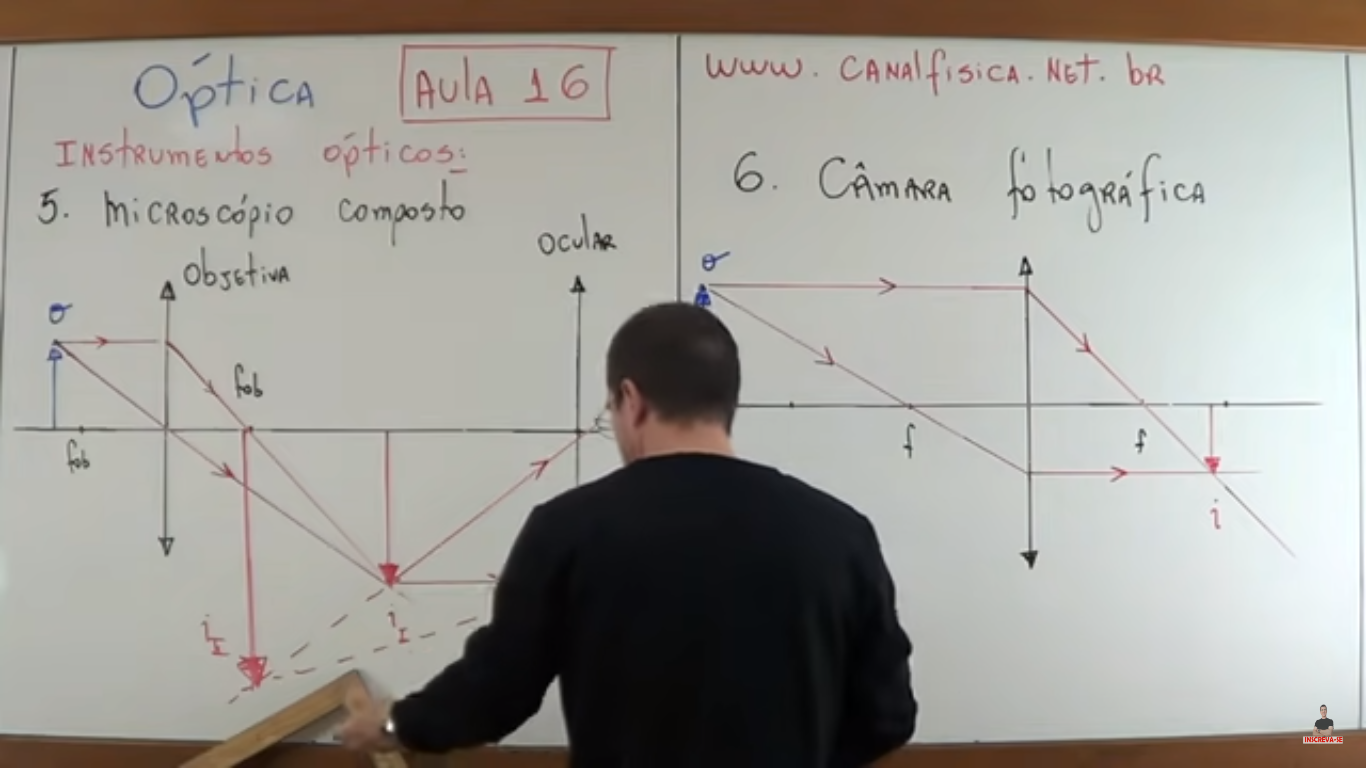 Óptica
AULA 16
INSTRUMENTOS ÓPTICOS:
5. MICROSCÓPIO COMPOSTO
OBJETIVA
OCULAR
o
fob
fob
i I
i I
www.CANALfISICA.NET.bR
6. CÂMARA fotográfica
o
f
f
i
INSCREVA-SE